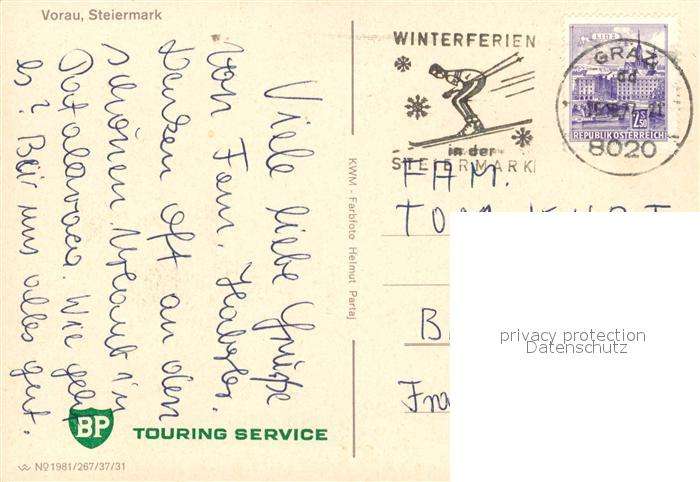 Vorau, Steiermark
Viele liebe Grüße
von Fam. Habeler.
Denken oft an den
schönen Urlaub in
Es? Bei uns alles gut.
BP TOURING SERVICE
Nº 1981/267/37/31
KWM - Farbfoto Helmut Partaj
WINTERFERIEN
in der
STEIERMARK
GRAZ
8020
2.50
REPUBLIK ÖSTERREICH
FAM.
privacy protection
Datenschutz